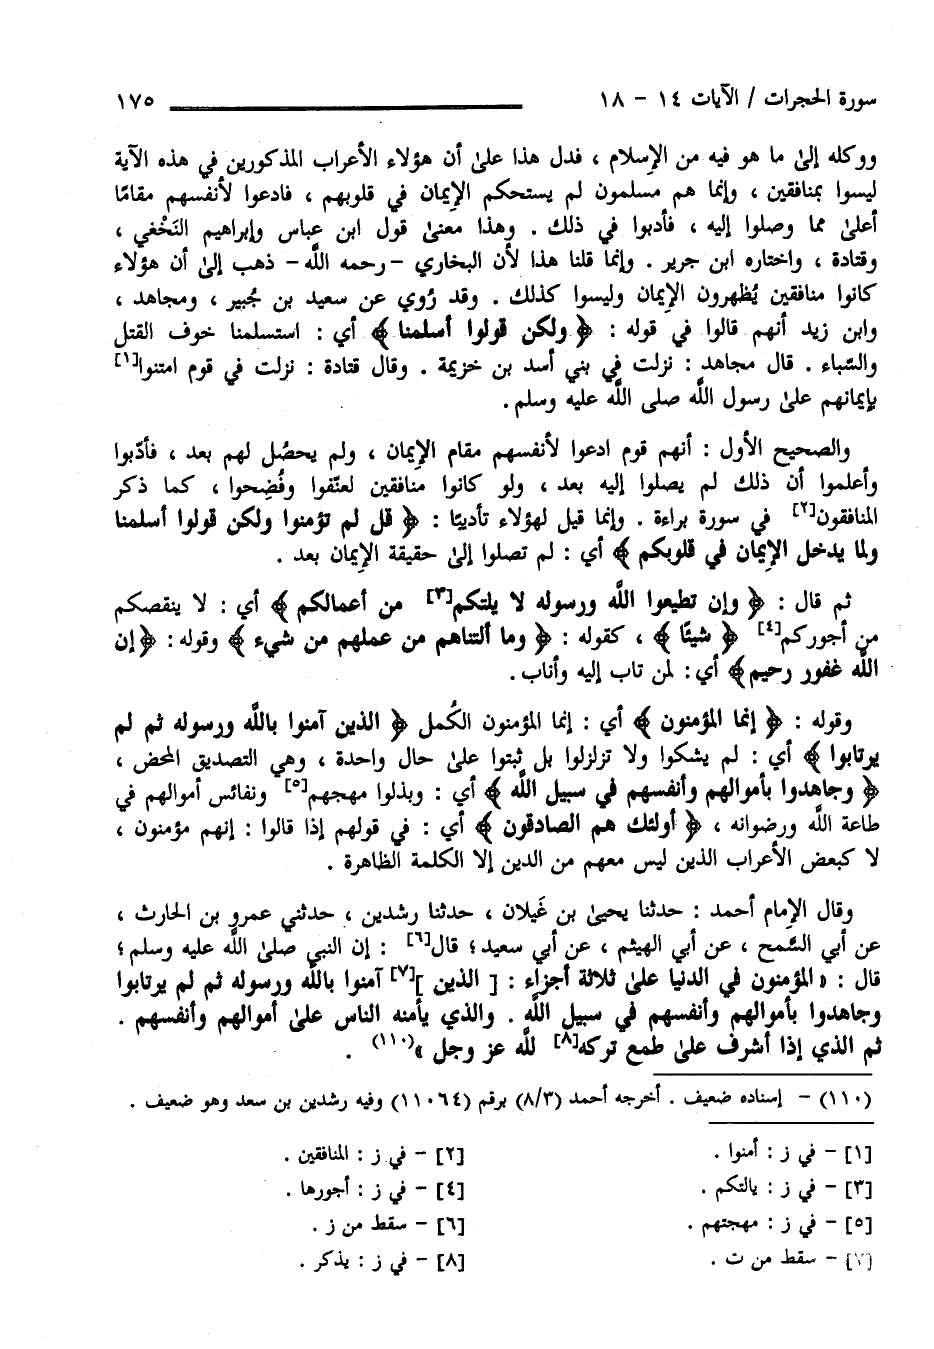 سورة الحجرات / الآيات ١٤ - ١٨ ١٧٥
ووكله إلىٰ ما هو فيه من الإسلام ، فدل هذا علىٰ أن هؤلاء الأعراب المذكورين في هذه الآية
ليسوا بمنافقين ، وإنما هم مسلمون لم يستحكم الإيمان في قلوبهم ، فادعوا لأنفسهم مقامًا
أعلىٰ مما وصلوا إليه ، فأدبوا في ذلك . وهذا معنىٰ قول ابن عباس وإبراهيم النَخْعي ،
وقتادة ، واختاره ابن جرير . وإنما قلنا هذا لأن البخاري -رحمه اللَّه- ذهب إلىٰ أن هؤلاء
كانوا منافقين يُظهرون الإيمان وليسوا كذلك . وقد رُوي عن سعيد بن جُبير ، ومجاهد ،
وابن زيد أنهم قالوا في قوله : ﴿ ولكن قولوا أسلمنا ﴾ أي : استسلمنا خوف القتل
والسّباء . قال مجاهد : نزلت في بني أسد بن خزيمة . وقال قتادة : نزلت في قوم امتنوا[١]
بإيمانهم علىٰ رسول اللَّه صلى اللَّه عليه وسلم.
والصحيح الأول : أنهم قوم ادعوا لأنفسهم مقام الإيمان ، ولم يحصُل لهم بعد ، فأدّبوا
وأعلموا أن ذلك لم يصلوا إليه بعد ، ولو كانوا منافقين لعنّفوا وفُضِحوا ، كما ذكر
المنافقون[٢] في سورة براءة . وإنما قيل لهؤلاء تأديبًا : ﴿ قل لم تؤمنوا ولكن قولوا أسلمنا
ولما يدخل الإيمان في قلوبكم ﴾ أي : لم تصلوا إلىٰ حقيقة الإيمان بعد .
ثم قال : ﴿ وإن تطيعوا اللَّه ورسوله لا يلتكم[٣] من أعمالكم ﴾ أي : لا ينقصكم
من أجوركم[٤] ﴿ شيئًا ﴾ ، كقوله : ﴿ وما ألتناهم من عملهم من شيء ﴾ وقوله : ﴿إن
اللَّه غفور رحيم﴾ أي: لمن تاب إليه وأناب.
وقوله : ﴿ إنما المؤمنون ﴾ أي : إنما المؤمنون الكُمل ﴿ الذين آمنوا باللَّه ورسوله ثم لم
يرتابوا ﴾ أي : لم يشكوا ولا تزلزلوا بل ثبتوا علىٰ حال واحدة ، وهي التصديق المحض ،
﴿ وجاهدوا بأموالهم وأنفسهم في سبيل اللَّه ﴾ أي : وبذلوا مهجهم[٥] ونفائس أموالهم في
طاعة اللَّه ورضوانه ، ﴿ أولئك هم الصادقون ﴾ أي : في قولهم إذا قالوا : إنهم مؤمنون ،
لا كبعض الأعراب الذين ليس معهم من الدين إلا الكلمة الظاهرة .
وقال الإمام أحمد : حدثنا يحيىٰ بن غَيلان ، حدثنا رشدين ، حدثني عمرو بن الحارث ،
عن أبي السَّمح ، عن أبي الهيثم ، عن أبي سعيد؛ قال[٦] : إن النبي صلىٰ اللَّه عليه وسلم؛
قال : « المؤمنون في الدنيا علىٰ ثلاثة أجزاء : [ الذين ][٧] آمنوا باللَّه ورسوله ثم لم يرتابوا
وجاهدوا بأموالهم وأنفسهم في سبيل اللَّه . والذي يأمنه الناس علىٰ أموالهم وأنفسهم .
ثم الذي إذا أشرف علىٰ طمع تركه[٨] للَّه عز وجل »(١١٠) .
(١١٠) - إسناده ضعيف . أخرجه أحمد (٨/٣) برقم (١١٠٦٤) وفيه رشدين بن سعد وهو ضعيف .
[١] - في ز : أمنوا . [٢] - في ز : المنافقين .
[٣] - في ز : يالتكم . [٤] - في ز : أجورها .
[٥] - في ز : مهجتهم . [٦] - سقط من ز .
[٧] - سقط من ت . [٨] - في ز : يذكر .